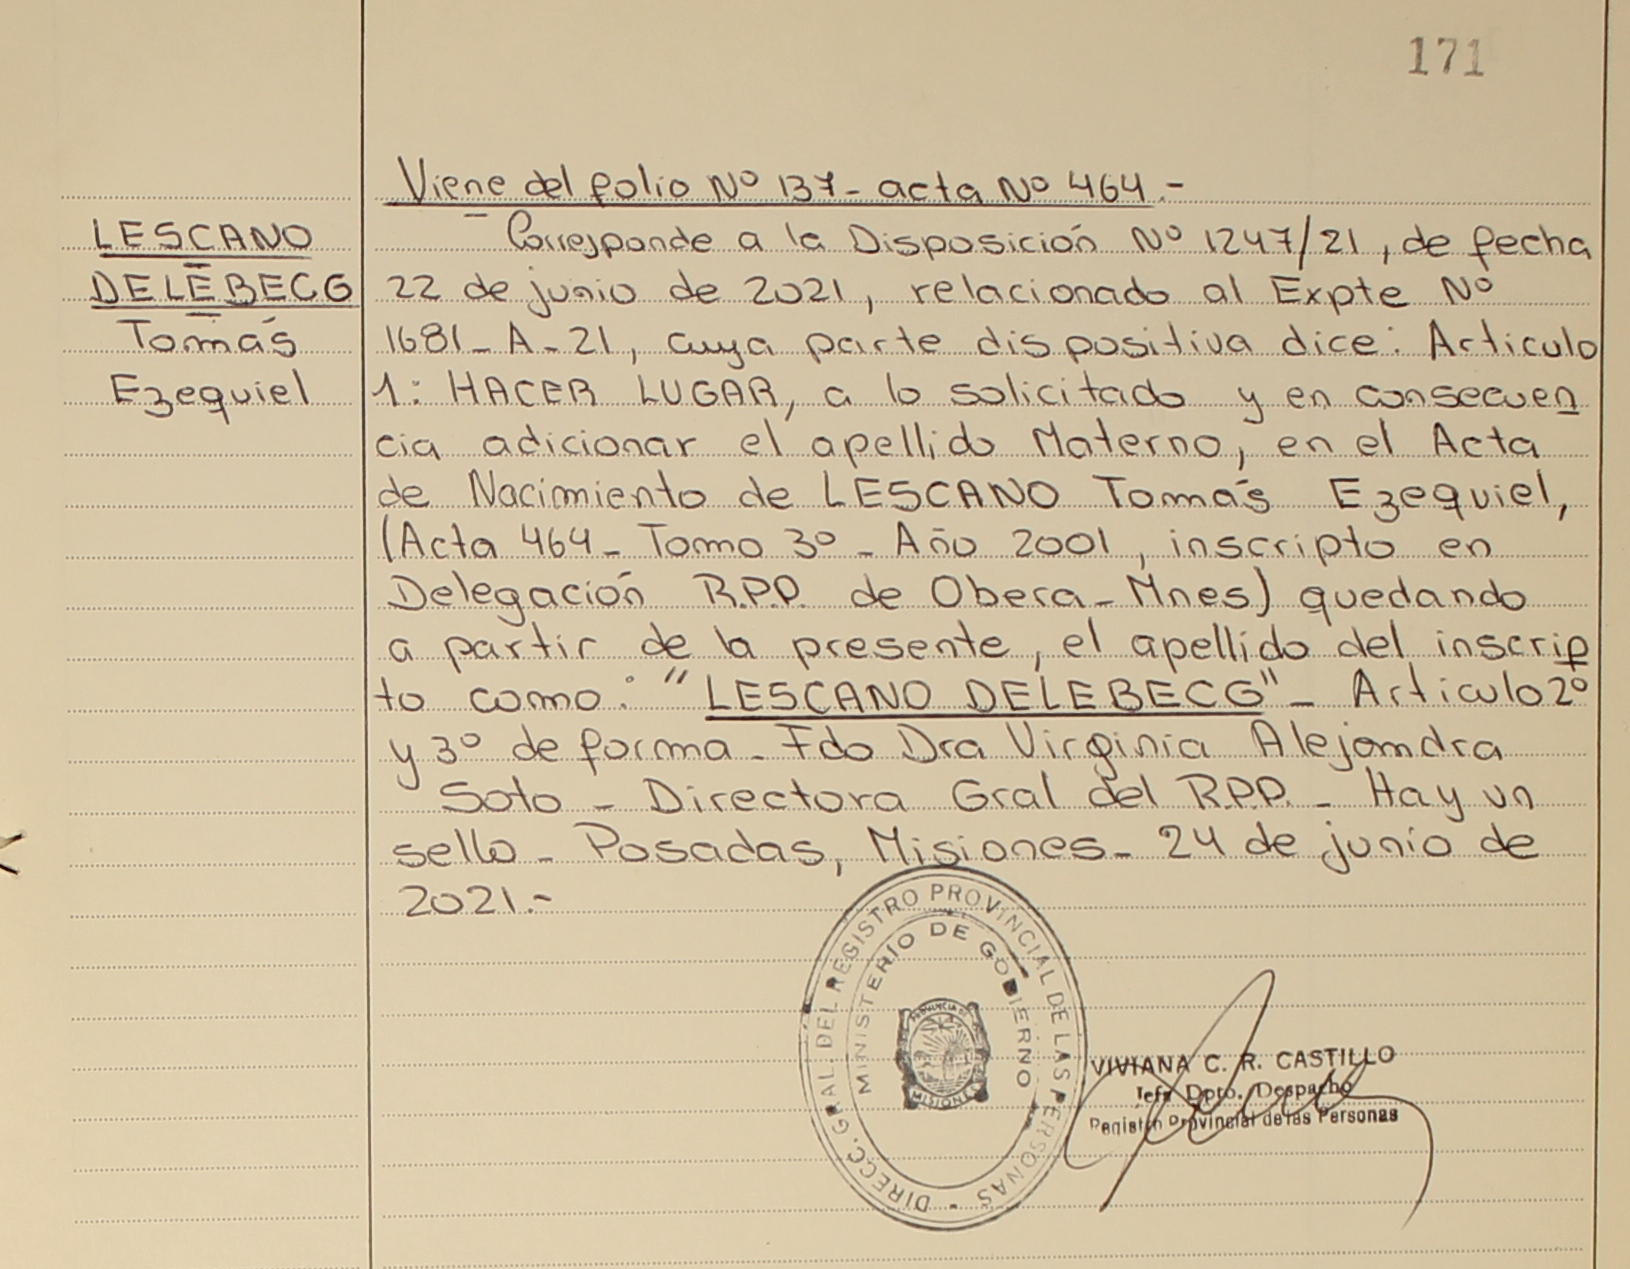 171
Viene del folio Nº 137- acta Nº 464.-
LESCANO
DELEBECG
Tomás
Ezequiel
Corresponde a la Disposición Nº 1247/21, de fecha
22 de junio de 2021, relacionado al Expte Nº
1681-A-21, cuya parte dispositiva dice: Articulo
1: HACER LUGAR, a lo solicitado y en consecuen
cia adicionar el apellido Materno, en el Acta
de Nacimiento de LESCANO Tomás Ezequiel,
(Acta 464- Tomo 3º - Año 2001, inscripto en
Delegación R.P.P. de Obera- Mnes) quedando
a partir de la presente, el apellido del inscrip
to como: "LESCANO DELEBECG"- Articulo 2º
y 3º de forma- Fdo Dra Virginia Alejandra
Soto - Directora Gral del R.P.P. - Hay un
sello - Posadas, Misiones- 24 de junio de
2021.-
DIRECC. GRAL. DEL REGISTRO PROVINCIAL DE LAS PERSONAS
MINISTERIO DE GOBIERNO
PROVINCIA DE
MISIONES
VIVIANA C. R. CASTILLO
Jefa Dpto. Despacho
Registro Provincial de las Personas